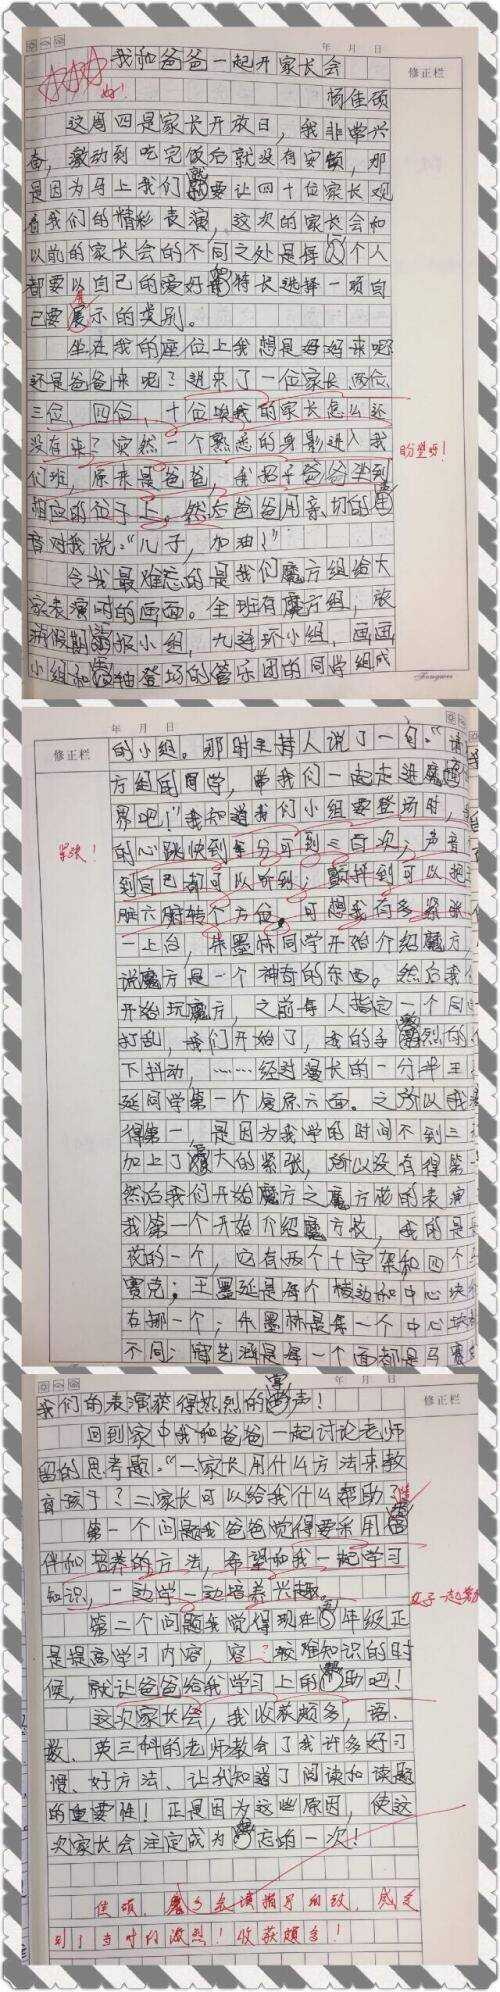 年 月 日
我和爸爸一起开家长会
修正栏
好!
杨佳颂
这周四是家长开放日，我非常兴
奋，激动到吃完饭后就没有安顿，那
是因为马上我们就要让四十位家长观
看我们的精彩表演，这次的家长会和
以前的家长会的不同之处是每个人
都要以自己的爱好特长选择一项自
己要展示的类别。
坐在我的座位上我想是妈妈来呢
还是爸爸来呢？进来了一位家长、两位、
三位、四位、十位唉我的家长怎么还
没有来？突然一个熟悉的身影进入我
盼望呀!
们班，原来是爸爸，我招手爸爸坐到
相应的位子上。然后爸爸用亲切的
音对我说：“儿子，加油！”
令我最难忘的是我们魔方组给大
家表演时的画面。全班有魔方组，欢
假期小报小组，九连环小组，画画
小组和登场的管乐团的同学组成
年 月 日
修正栏
的小组。那时主持人说了一句：“请
方组同学，带我们一起走进魔
界吧！”我知道我们小组要登场时，
紧张!
的心跳快到每分可到三百次；声音
到自己都可以听到；颤抖到可以把
脏六腑转个方位，可想我有多紧张
一上台，朱墨林同学开始介绍魔方，
说魔方是一个神奇的东西。然后我们
开始玩魔方，之前每人指定一个同
打乱，我们开始了，我的手烈的
下抖动，……经过漫长的一分半王
延同学第一个复原六面。之所以我
得第一，是因为我学的时间不到三
加上了大的紧张，所以没有得第一
然后我们开始魔方之魔方花的表演
我第一个开始介绍魔方花，我的是
花的一个，它有两个十字架和四个
赛克；王墨延是每个棱边和中心块
右那一个；朱墨林是每一个中心块
不同；艺涵是每一个面都是马赛
年 月 日
我们的表演获得热烈的掌声！
修正栏
回到家中我和爸爸一起讨论老师
留的思考题：“一、家长用什么方法来教
育孩子？二、家长可以给我什么帮助？
第一个问题我爸爸觉得要采用陪
伴和培养的方法，希望和我一起学习
知识，一边学一边培养兴趣。
第二个问题我觉得现在五年级正
是提高学习内容，容较难知识的时
候，就让爸爸给我学习上的帮助吧！
这次家长会，我收获颇多，语、
数、英三科的老师教会了我许多好习
惯、好方法、让我知道了阅读和读题
的重要性！正是因为这些原因，使这
次家长会注定成为忘的一次！
佳颂，感受
到了当时的激烈！收获颇多！